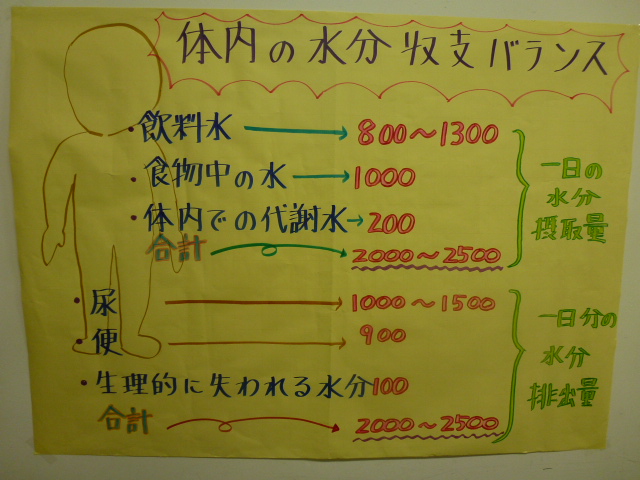 体内の水分収支バランス
・飲料水 → 800〜1300
・食物中の水 → 1000
・体内での代謝水 → 200
合計 → 2000〜2500
一日の
水分
摂取量
・尿 → 1000〜1500
・便 → 900
・生理的に失われる水分 100
合計 → 2000〜2500
一日分の
水分
排出量